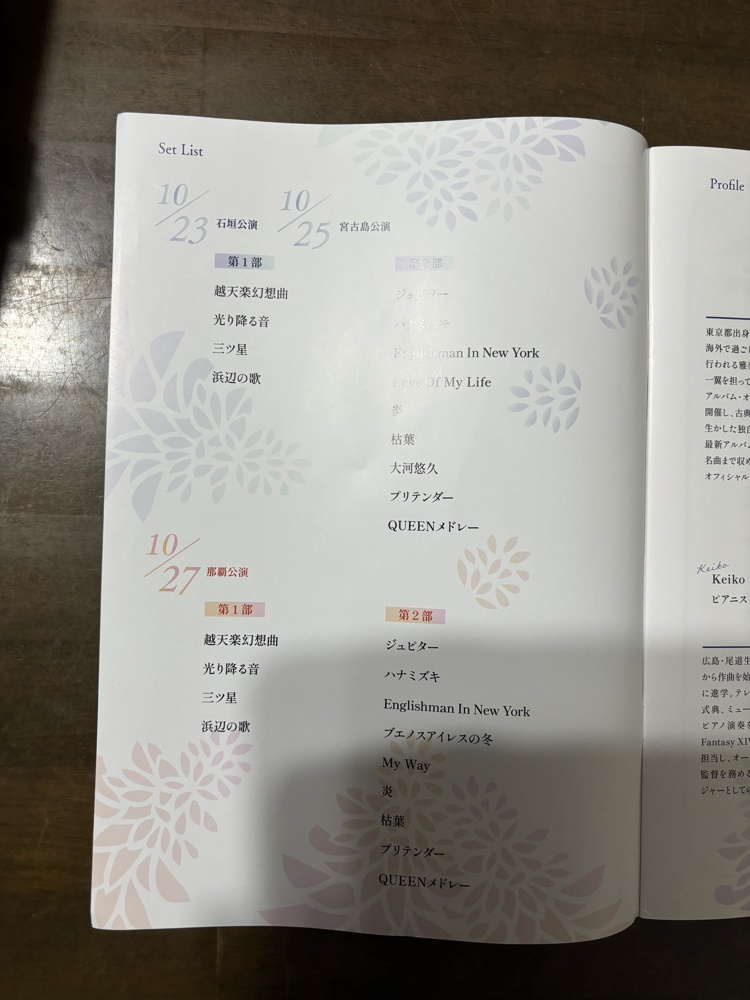 Set List
10/23 石垣公演
10/25 宮古島公演
第1部
越天楽幻想曲
光り降る音
三ツ星
浜辺の歌
第2部
ジュピター
ハナミズキ
Englishman In New York
Love Of My Life
炎
枯葉
大河悠久
プリテンダー
QUEENメドレー
10/27 那覇公演
第1部
越天楽幻想曲
光り降る音
三ツ星
浜辺の歌
第2部
ジュピター
ハナミズキ
Englishman In New York
ブエノスアイレスの冬
My Way
炎
枯葉
プリテンダー
QUEENメドレー
Profile
東京都出身
海外で過ご
行われる雅
一翼を担って
アルバム・オ
開催し、古典
生かした独自
最新アルバ
名曲まで収め
オフィシャル
Keiko
Keiko
ピアニス
広島・尾道生
から作曲を始
に進学。テレ
式典、ミュー
ピアノ演奏を
Fantasy XIV
担当し、オー
監督を務める
ジャーとしての